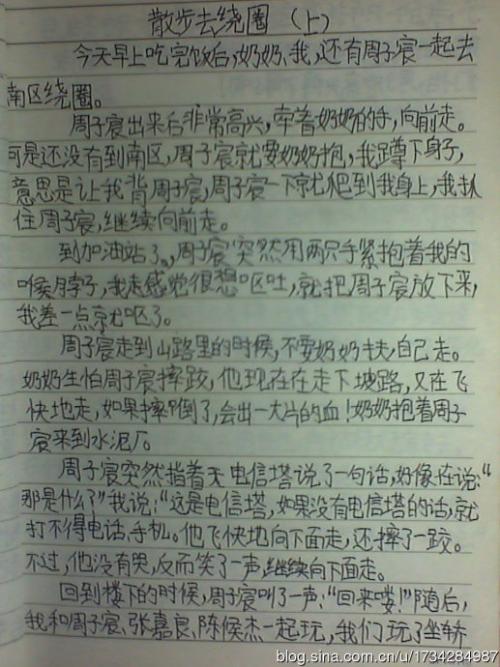 散步去绕圈（上）
今天早上吃完饭后,奶奶、我,还有周子宸一起去
南区绕圈。
周子宸出来后非常高兴,牵着奶奶的手,向前走。
可是还没有到南区,周子宸就要奶奶抱,我蹲下身子,
意思是让我背周子宸,周子宸一下就爬到我身上,我扒
住周子宸,继续向前走。
到加油站了,周子宸突然用两只手紧抱着我的
喉脖子,我走感觉很想呕吐,就把周子宸放下来,
我差一点就呕了。
周子宸走到山路里的时候,不要奶奶扶,自己走。
奶奶生怕周子宸摔跤,他现在在走下坡路,又在飞
快地走,如果摔倒了,会出一大片的血!奶奶抱着周子
宸来到水泥厂。
周子宸突然指着无电信塔说了一句话,好像在说:“
那是什么?”我说:“这是电信塔,如果没有电信塔的话,就
打不得电话、手机。他飞快地向下面走,还摔了一跤。
不过,他没有哭,反而笑了一声,继续向下面走。
回到楼下的时候,周子宸叫了一声:“回来喽!”随后,
我和周子宸、张嘉良、陈候杰一起玩,我们玩了坐轿
blog.sina.com.cn/u/1734284987